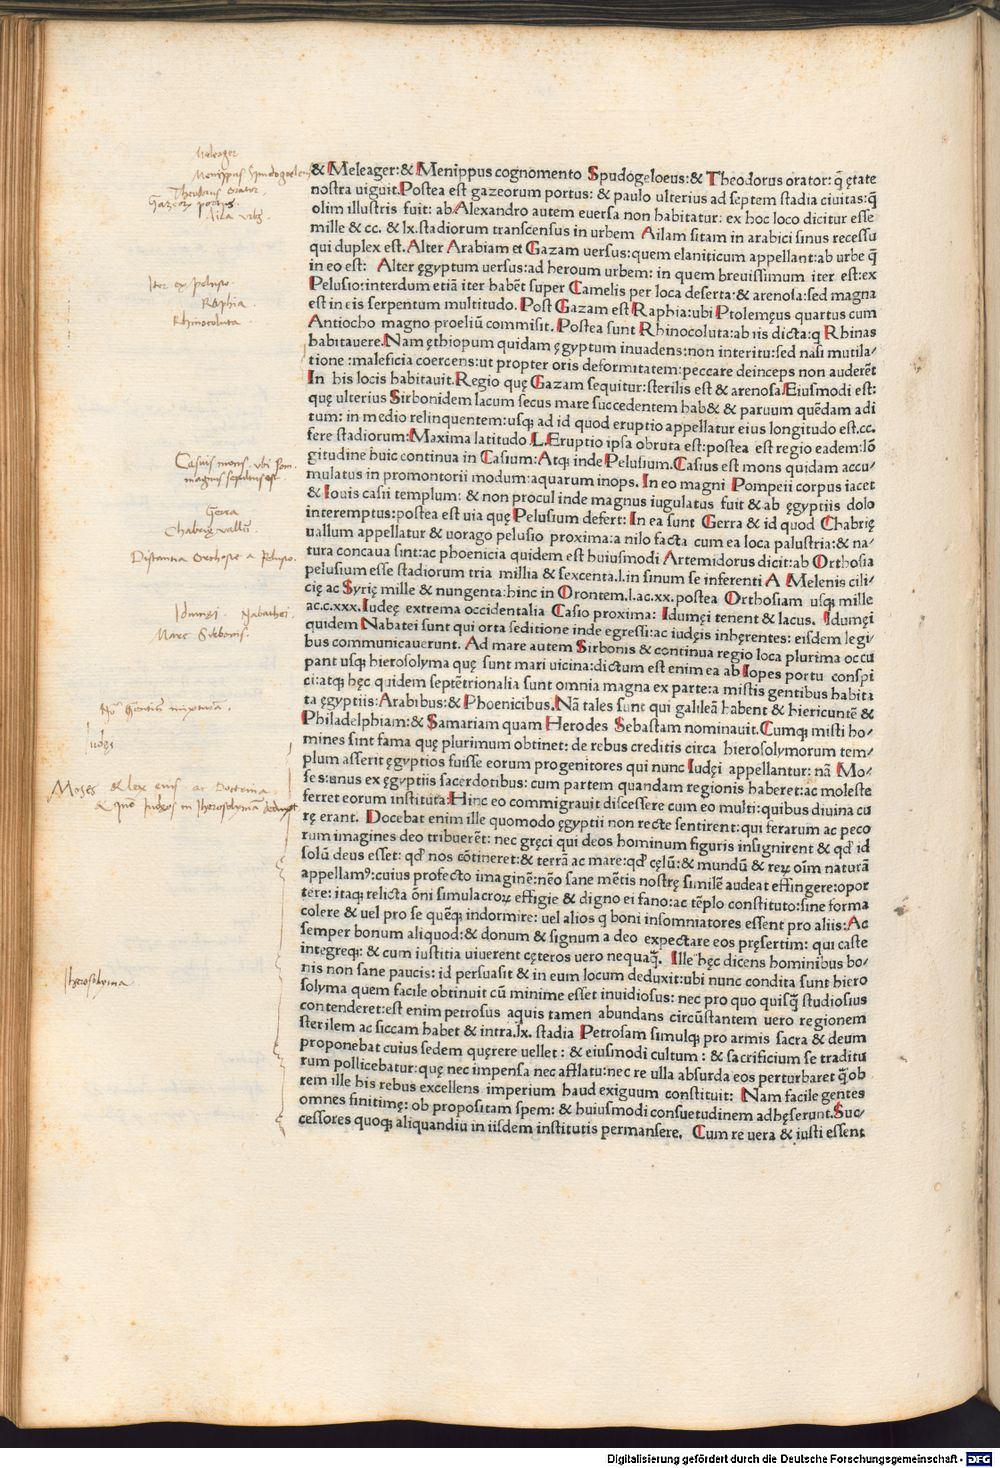 Meleager
Menippus Spudogoeleus
Theodorus orator.
Gazeorum portus.
Aila urbs.
Iter ex pelusio
Raphia.
Rhinocoluta.
Casius mons. ubi Pom.
magnus sepultus est
Gerra
Chabrię vallum.
Distantia Orthosię a Pelusio.
Idumęi. Nabathei.
Mare Sirbonis.
Gentium mixtura.
Iudęi
Moses & lex eius ac Doctrina.
& quo Iudęos in Iherosolymam deduxit
Iherosolyma
& Meleager:& Menippus cognomento Spudogeloeus:& Theodorus orator: q̄ ętate
nostra uiguit.Postea est gazeorum portus: & paulo ulterius ad septem stadia ciuitas:q̄
olim illustris fuit: ab Alexandro autem euersa non habitatur: ex hoc loco dicitur esse
mille & cc. & lx.stadiorum transcensus in urbem Ailam sitam in arabici sinus recessu
qui duplex est.Alter Arabiam et Gazam uersus:quem elaniticum appellant:ab urbe q̄
in eo est: Alter ęgyptum uersus:ad heroum urbem: in quem breuissimum iter est:ex
Pelusio:interdum etiā iter habēt super Camelis per loca deserta:& arenosa:sed magna
est in eis serpentum multitudo. Post Gazam est Raphia:ubi Ptolemęus quartus cum
Antiocho magno proeliū commisit. Postea sunt Rhinocoluta:ab iis dicta:q Rhinas
habitauere.Nam ęthiopum quidam ęgyptum inuadens:non interitu:sed nasi mutila/
tione :maleficia coercens:ut propter oris deformitatem:peccare deinceps non auderēt
In his locis habitauit.Regio quę Gazam sequitur:sterilis est & arenosa.Eiusmodi est:
quę ulterius Sirbonidem lacum secus mare succedentem hab& & paruum quēdam adi
tum: in medio relinquentem:usq; ad id quod eruptio appellatur eius longitudo est.cc.
fere stadiorum:Maxima latitudo .L.Eruptio ipsa obruta est:postea est regio eadem:lō
gitudine huic continua in Casium:Atq; inde Pelusium.Casius est mons quidam accu/
mulatus in promontorii modum:aquarum inops. In eo magni Pompeii corpus iacet
& Iouis casii templum: & non procul inde magnus iugulatus fuit & ab ęgyptiis dolo
interemptus:postea est uia quę Pelusium defert: In ea sunt Gerra & id quod Chabrię
uallum appellatur & uorago pelusio proxima:a nilo facta cum ea loca palustria:& na/
tura concaua sint:ac phoenicia quidem est huiusmodi Artemidorus dicit:ab Orthosia
pelusium esse stadiorum tria millia & sexcenta.l.in sinum se inferenti A Melenis cili/
cię ac Syrię mille & nungenta:hinc in Orontem.l.ac.xx.postea Orthosiam usq; mille
ac.c.xxx.Iudeę extrema occidentalia Casio proxima: Idumęi tenent & lacus. Idumęi
quidem Nabatei sunt qui orta seditione inde egressi:ac iudęis inhęrentes: eisdem legi/
bus communicauerunt. Ad mare autem Sirbonis & continua regio loca plurima occu
pant usq; hierosolyma quę sunt mari uicina:dictum est enim ea ab Iopes portu conspi
ci:atq; hęc quidem septētrionalia sunt omnia magna ex parte:a mistis gentibus habita
ta ęgyptiis:Arabibus:& Phoenicibus.Nā tales sunt qui galileā habent & hiericuntē &
Philadelphiam:& Samariam quam Herodes Sebastam nominauit.Cumq; misti ho/
mines sint fama quę plurimum obtinet: de rebus creditis circa hierosolymorum tem/
plum asserit ęgyptios fuisse eorum progenitores qui nunc Iudęi appellantur: nā Mo/
ses:unus ex ęgyptiis sacerdotibus: cum partem quandam regionis haberet:ac moleste
ferret eorum instituta:Hinc eo commigrauit discessere cum eo multi:quibus diuina cu
rę erant. Docebat enim ille quomodo ęgyptii non recte sentirent:qui ferarum ac peco
rum imagines deo tribuerēt: nec gręci qui deos hominum figuris insignirent & qđ id
solū deus esset: qđ nos cōtineret:& terrā ac mare:qđ cęlū:& mundū & reꝝ oīm naturā
appellamꝰ:cuius profecto imaginē:nēo sane mētis nostrę similē audeat effingere:opor
tere: itaq; relicta ōni simulacroꝝ effigie & digno ei fano:ac tēplo constituto:sine forma
colere & uel pro se quēq; indormire: uel alios q boni insomniatores essent pro aliis:Ac
semper bonum aliquod:& donum & signum a deo expectare eos pręsertim: qui caste
integreq;: & cum iustitia uiuerent cęteros uero nequaq̄. Ille hęc dicens hominibus bo/
nis non sane paucis: id persuasit & in eum locum deduxit:ubi nunc condita sunt hiero
solyma quem facile obtinuit cū minime esset inuidiosus: nec pro quo quisq̄ studiosius
contenderet:est enim petrosus aquis tamen abundans circūstantem uero regionem
sterilem ac siccam habet & intra.lx. stadia Petrosam simulq; pro armis sacra & deum
proponebat cuius sedem quęrere uellet : & eiusmodi cultum : & sacrificium se traditu
rum pollicebatur:quę nec impensa nec afflatu:nec re ulla absurda eos perturbaret q̄ob
rem ille his rebus excellens imperium haud exiguum constituit: Nam facile gentes
omnes finitimę: ob propositam spem: & huiusmodi consuetudinem adhęserunt.Suc/
cessores quoq; aliquandiu in iisdem institutis permansere. Cum re uera & iusti essent
Digitalisierung gefördert durch die Deutsche Forschungsgemeinschaft - DFG